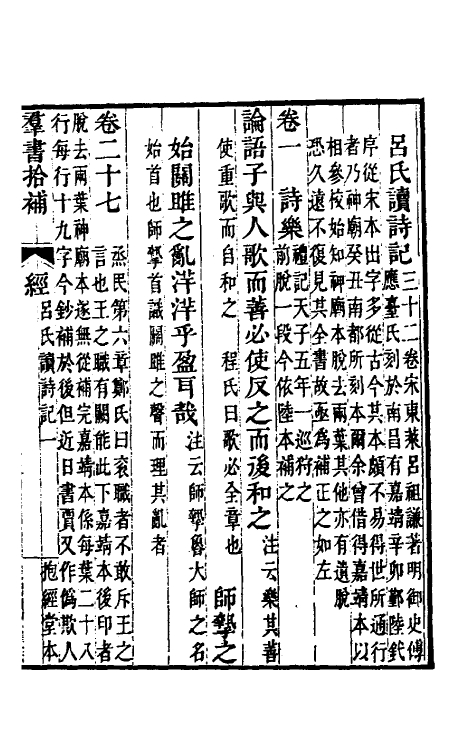 呂氏讀詩記三十二卷宋東萊呂祖謙著明御史傅
應臺氏刻於南昌有嘉靖辛卯鄞陸釴
序從宋本出字多從古今其本頗不易得世所通行
者乃神廟癸丑南都所刻本爾余曾借得嘉靖本以
相參校始知神廟本脫去兩葉其他亦有遺脫
恐久遠不復見其全書故亟為補正之如左
卷一 詩樂禮記天子五年一巡狩之
前脫一段今依陸本補之
論語子與人歌而善必使反之而後和之注云樂其善
使重歌而自和之 程氏曰歌必全章也 師摯之
始關雎之亂洋洋乎盈耳哉注云師摯魯大師之名
始首也師摯首識關雎之聲而理其亂者
卷二十七 烝民第六章鄭氏曰袞職者不敢斥王之
言也王之職有闕能此下嘉靖本後印者
脫去兩葉神廟本遂無從補完嘉靖本係每葉二十八
行每行十九字今鈔補於後但近日書賈又作偽欺人
羣書拾補 經 呂氏讀詩記一 抱經堂本